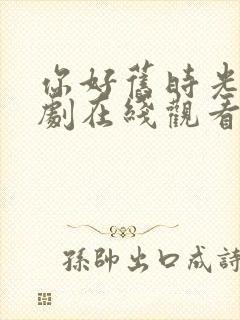 你好舊時光
劇在綫觀看
孫帥出口成詩